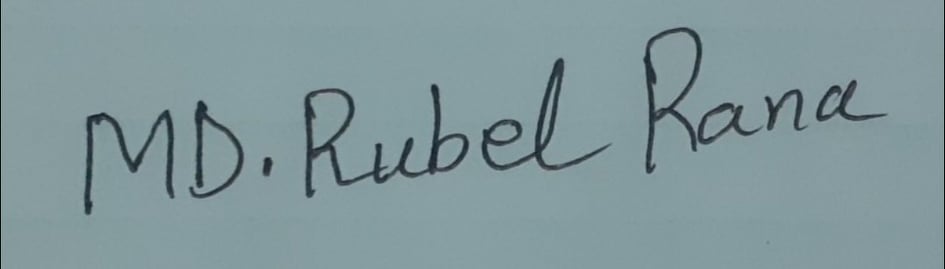 MD. Rubel Rana